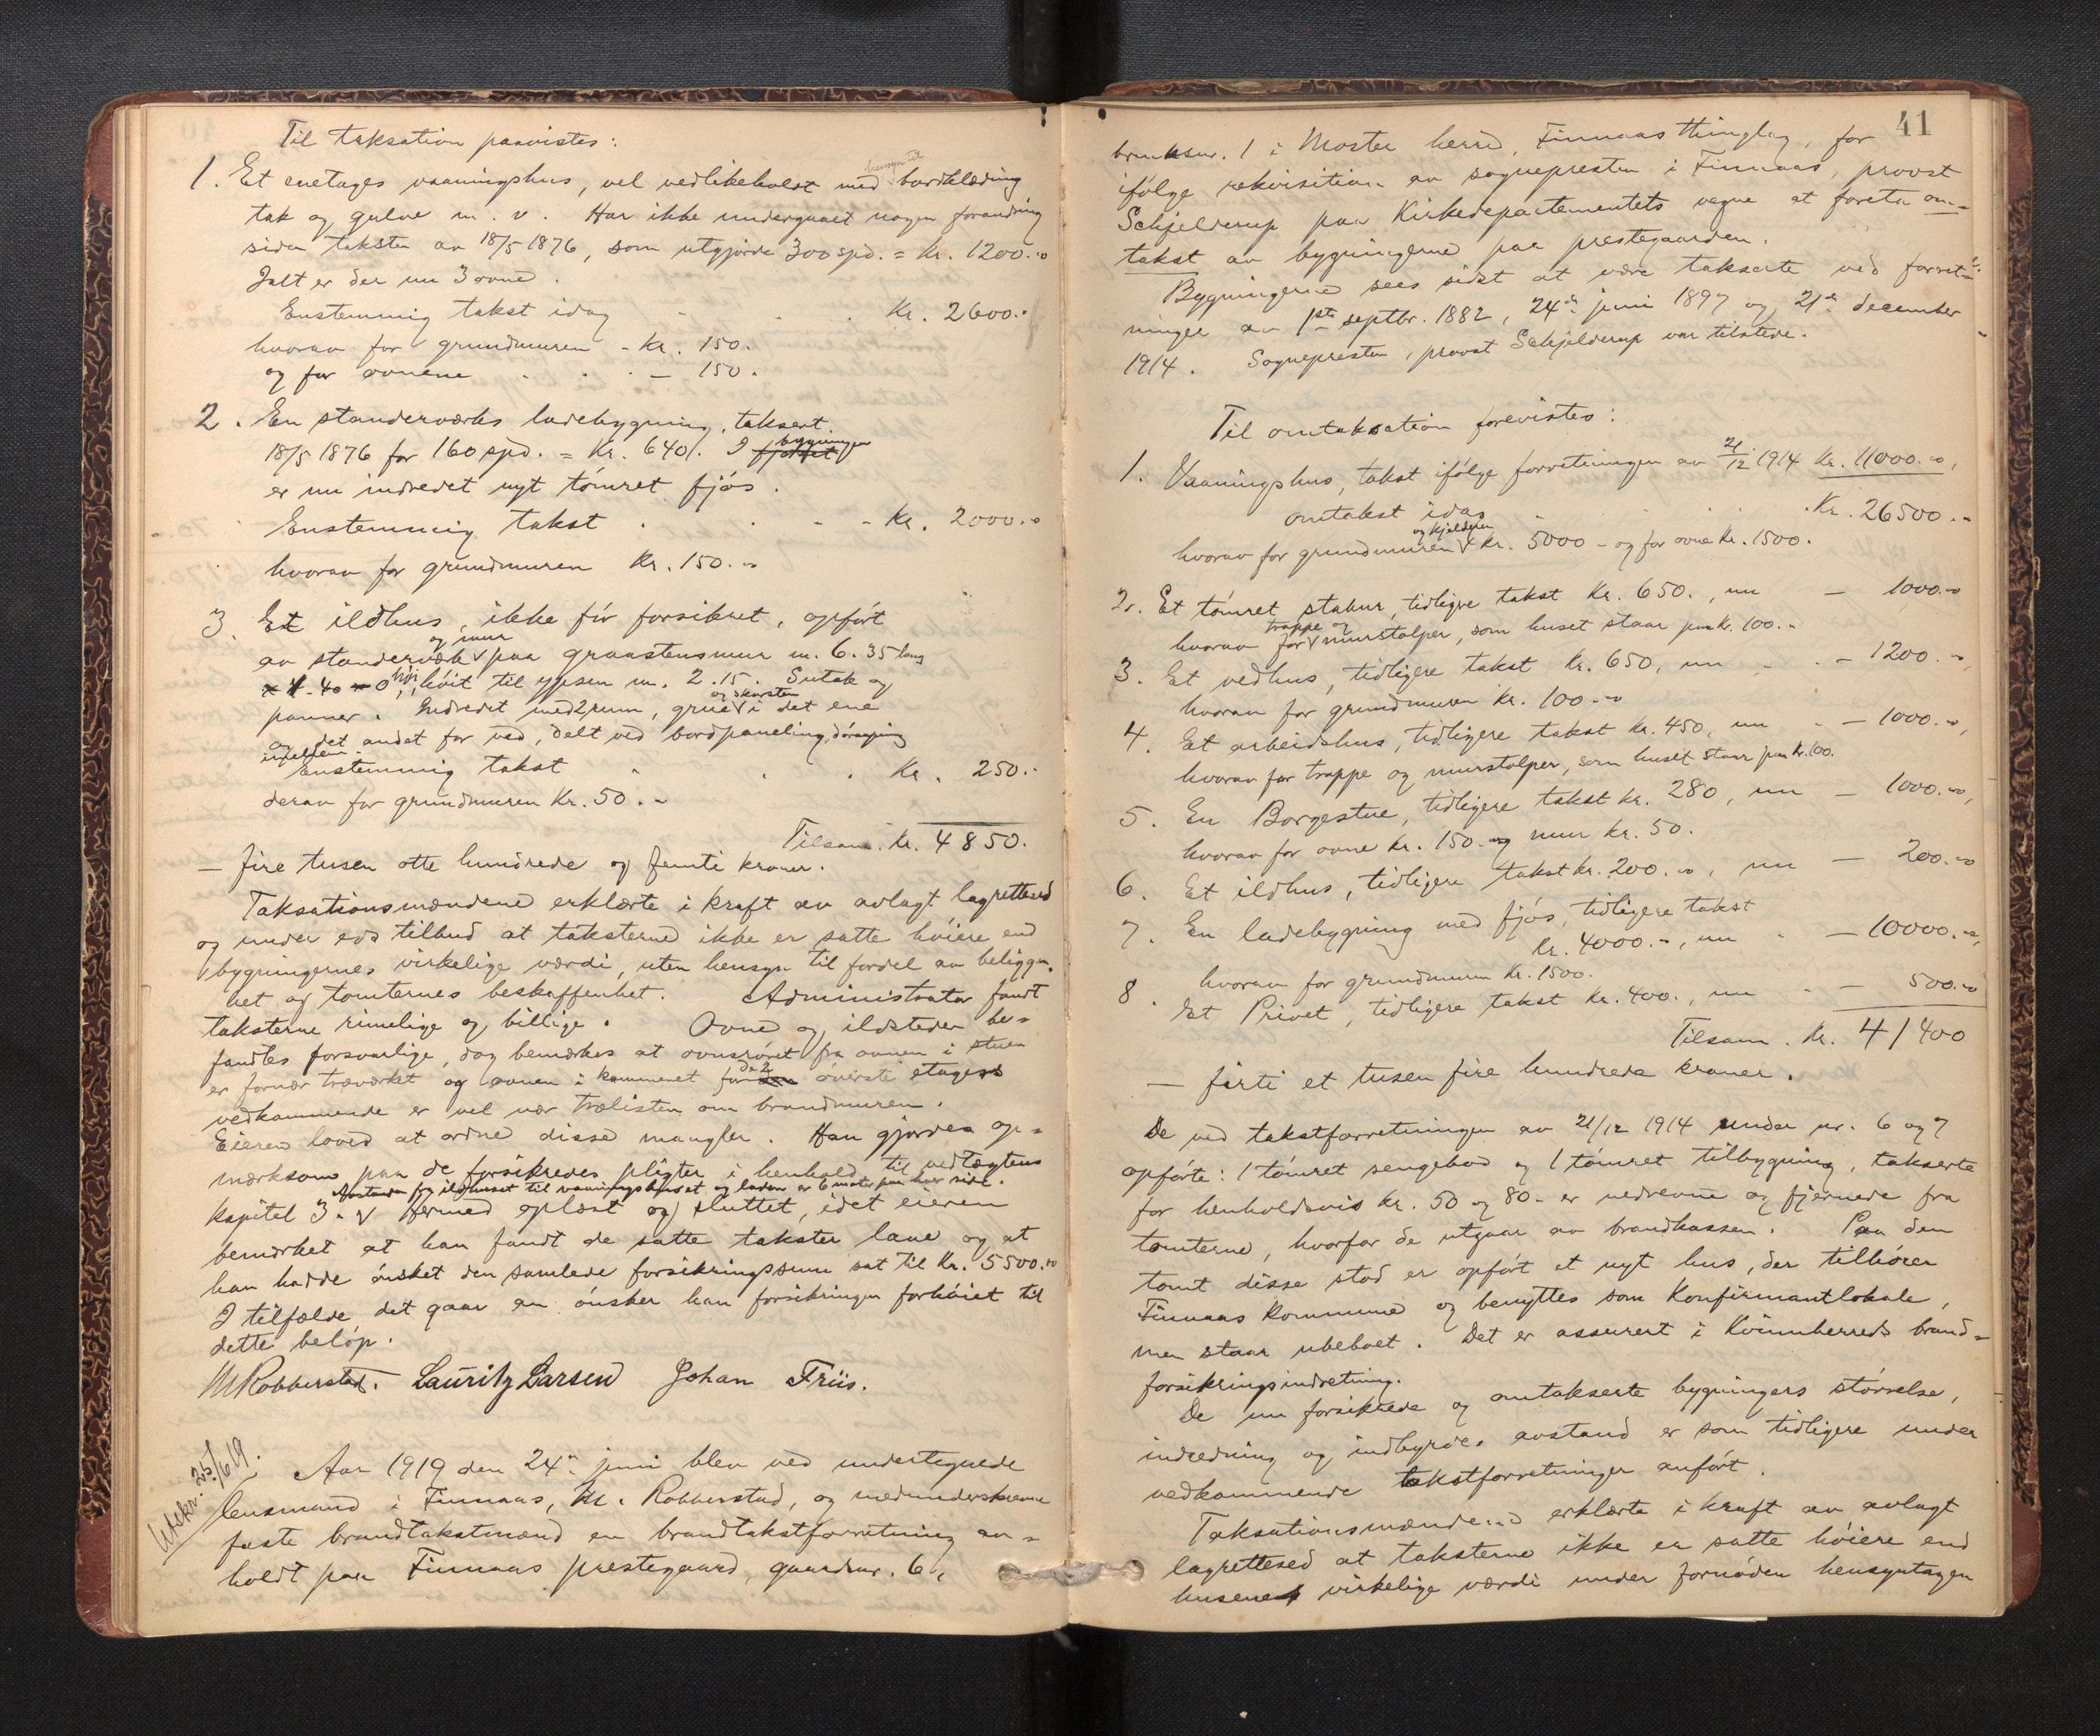 Til taksation paavistes:
1. Et enetages vaaningshus, vel vedlikeholdt med hensyn til bordklædning
tak og gulve m. v. Har ikke undergaaet nogen forandring
siden taksten av 18/5 1876, som utgjorde 300 spd. = Kr. 1200.-
Ialt er der nu 3 ovne.
Enstemmig takst idag - . Kr. 2600.-
hvorav for grundmuren - Kr. 150.
og for ovnene . . . — 150.
2. En standerværks ladebygning, taksert
18/5 1876 for 160 spd. = Kr. 640/. I fjøset bygningen
er nu indredet nyt tømret fjøs.
Enstemmig takst . . - - Kr. 2000.-
hvorav for grundmuren Kr. 150.-
3. Et ildhus, ikke før forsikret, opført
av standerværk og mur paa graastensmur m. 6.35 lang
4.40, høit til ypsen m. 2.15. Sutak og
panner. Indredet med 2 rum, grue og skorsten i det ene
og det andet for ved, delt ved bordpaneling,
Enstemmig takst . . . Kr. 250.-
derav for grundmuren Kr. 50.-
Tilsam. Kr. 4850.
— fire tusen otte hundrede og femti kroner.
Taksationsmændene erklærte i kraft av avlagt lagretteed
og under eds tilbud at taksterne ikke er satte høiere end
bygningernes virkelige værdi, uten hensyn til fordel av beliggen-
het og tomternes beskaffenhet. Administrator fandt
taksterne rimelige og billige. Ovne og ildsteder be-
fandtes forsvarlige, dog bemerkes at ovnsrøret fra ovnen i stuen
er fornær træverket og ovnen i kammeret for den de 2 øverste etagers
vedkommende er vel nær trælisten om brandmuren.
Eieren loved at ordne disse mangler. Han gjordes op-
merksom paa de forsikredes pligter i henhold til vedtægtens
Avstanden fra ildhuset til vaaningshuset og laden er 6 meter paa hver side.
kapitel 3. Hermed oplæst og sluttet, idet eieren
bemerket at han fandt de satte takster lave og at
han hadde ønsket den samlede forsikringssum sat til Kr. 5500.-
I tilfælde det gaar an ønsker han forsikringen forhøiet til
dette beløp.
M Robberstad. Lauritz Larsen Johan Friis.
Utskr. 25/6 19.
Aar 1919 den 24de juni blev ved undertegnede
lensmand i Finnaas, M. Robberstad, og medunderskrevne
faste brandtakstmænd en brandtakstforretning av-
holdt paa Finnaas prestegaard, gaardsnr. 6,
41
bruksnr. 1 i Moster herred, Finnaas thinglag, for
ifølge rekvisition av sognepresten i Finnaas, provst
Schjelderup paa Kirkedepartementets vegne at foreta om-
takst av bygningerne paa prestegaarden.
Bygningerne sees sidst at være takserte ved forret-
ninger av 1ste septbr. 1882, 24de juni 1897 og 21de december
1914. Sognepresten, provst Schjelderup var tilstede.
Til omtaksation forevistes:
1. Vaaningshus, takst ifølge forretningen av 21/12 1914 Kr. 11000.-,
omtakst idag - . . . Kr. 26500.-
hvorav for grundmuren og kjelderen Kr. 5000 - og for ovne Kr. 1500.
2. Et tømret stabur, tidligre takst Kr. 650., nu — 1000.-
hvorav for trappe og murstolper, som huset staar paa Kr. 100.-
3. Et vedhus, tidligere takst Kr. 650, nu - . — 1200.-,
hvorav for grundmuren Kr. 100.-
4. Et arbeidshus, tidligere takst Kr. 450, nu - — 1000.-,
hvorav for trappe og murstolper, som huset staar paa Kr. 100.
5. En Borgestue, tidligere takst Kr. 280, nu — 1000.-,
hvorav for ovne Kr. 150 - og mur Kr. 50.
6. Et ildhus, tidligere takst Kr. 200.-, nu — 200.-
7. En ladebygning med fjøs, tidligere takst
kr. 4000.-, nu - — 10000.-,
hvorav for grundmuren Kr. 1500.
8. Et Privet, tidligere takst Kr. 400., nu - — 500.-
Tilsam. Kr. 41400
— firti et tusen fire hundrede kroner.
De ved takstforretningen av 21/12 1914 under nr. 6 og 7
opførte: 1 tømret sengebod og 1 tømret tilbygning, takserte
for henholdsvis Kr. 50 og 80 - er nedrevne og fjernede fra
tomterne, hvorfor de utgaar av brandkassen. Paa den
tomt disse stod er opført et nyt hus, der tilhører
Finnaas Kommune og benyttes som Konfirmantlokale,
men staar ubeboet. Det er assurert i Kvinnherreds brand-
forsikringsindretning.
De nu forsikrede og omtakserte bygningers størrelse,
indredning og indbyrdes avstand er som tidligere under
vedkommende takstforretninger anført.
Taksationsmændene erklærte i kraft av avlagt
lagretteed at taksterne ikke er satte høiere end
husenes virkelige værdi under fornøden hensyntagen